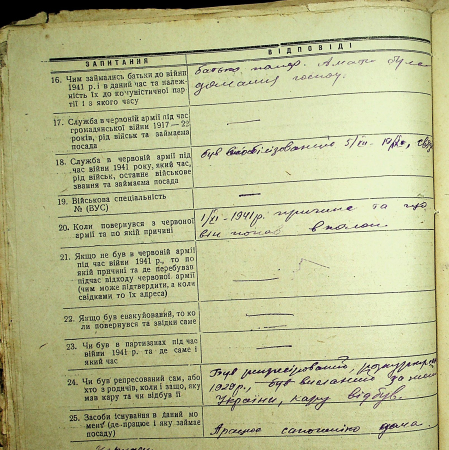 ЗАПИТАННЯ
ВІДПОВІДІ
16. Чим займались батьки до війни
1941 р. і в даний час та належ-
ність їх до комуністичної пар-
тії і з якого часу
батько помер. А мати була
домашня госпо.
17. Служба в червоній армії під час
громадянської війни 1917—22
років, рід військ та займаема
посада
—
18. Служба в червоній армії під
час війни 1941 року, який час,
рід військ, останнє військове
звання та займаема посада
був мобілізований 5/VII
19. Військова спеціальність
№ (ВУС)
—
20. Коли повернувся з червоної
армії та по якій причині
1941 р. причина та що
він попав в полон.
21. Якщо не був в червоній армії
під час війни 1941 р., то по
якій причині та де перебував
підчас відходу червоної армії
(чим може підтвердити, а коли
свідками то їх адреса)
—
22. Якщо був евакуйований, то ко
ли повернувся та звідки саме
—
23. Чи був в партизанах під час
війни 1941 р. та де саме і
який час
—
24. Чи був репресований сам, або
хто з родичів, коли і защо, яку
мав кару та чи відбув її
Був репресований, розкуркул
1929 р., був висланий за межі
України, кару відбув.
25. Засоби існування в даний мо
мент (де-працює і яку займає
посаду)
Працює сапожніко дома.